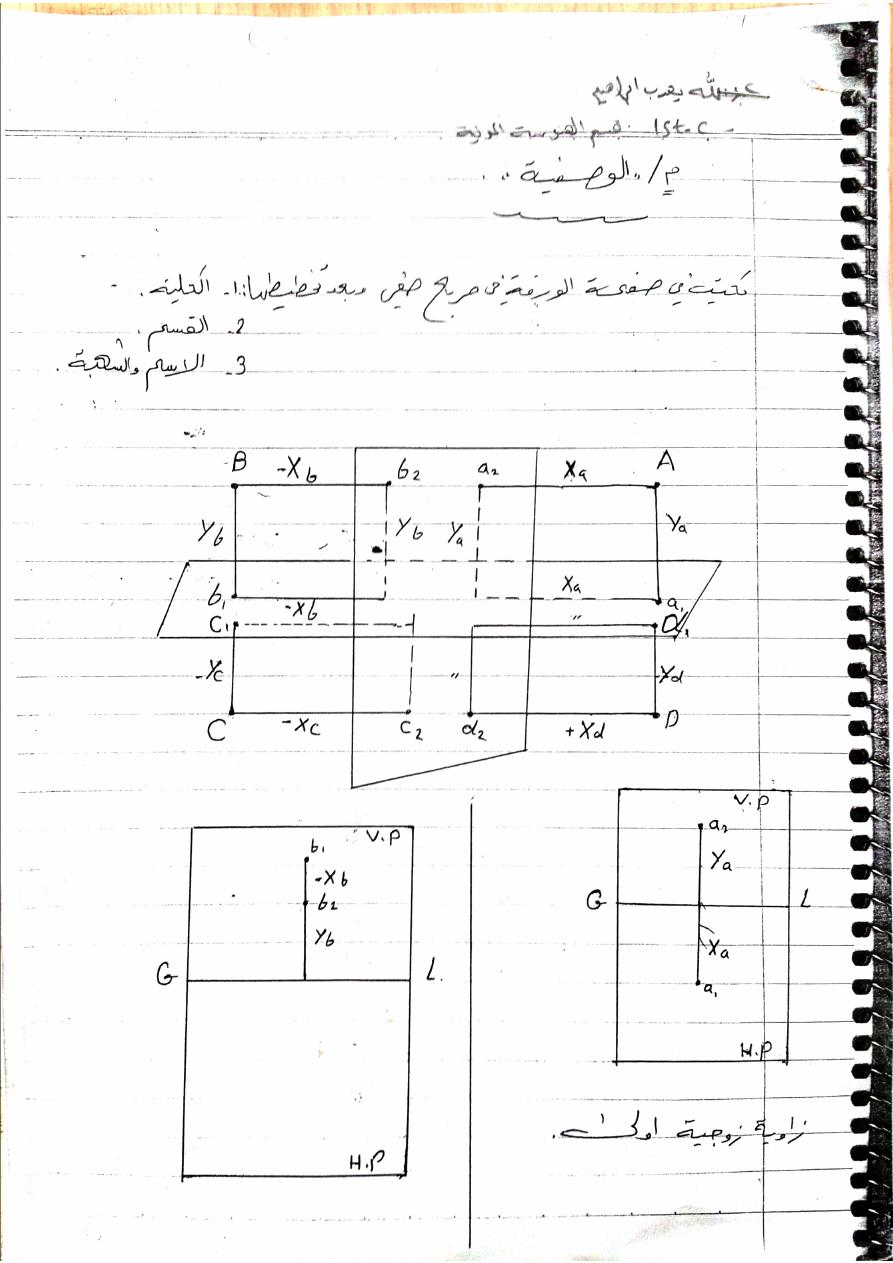 عبدالله يعرب ابراهيم
1St.C قسم الهندسة المدنية
م/ ،، الوصفية ،، .
تكتب في صفحة الورقة في مربع صغير وبعد تخطيطها :1- الكلية .
2- القسم .
3- الاسم والشعبة .
B -Xb b2 a2 Xa A
Yb Yb Ya Ya
b1 -Xb Xa a1
C1 " D1
-Yc " -Yd
C -Xc c2 d2 +Xd D
V.P
a2
Ya
G L
Xa
a1
H.P
زاوية زوجية اولى .
V.P
b1
-Xb
b2
Yb
G L.
H.P